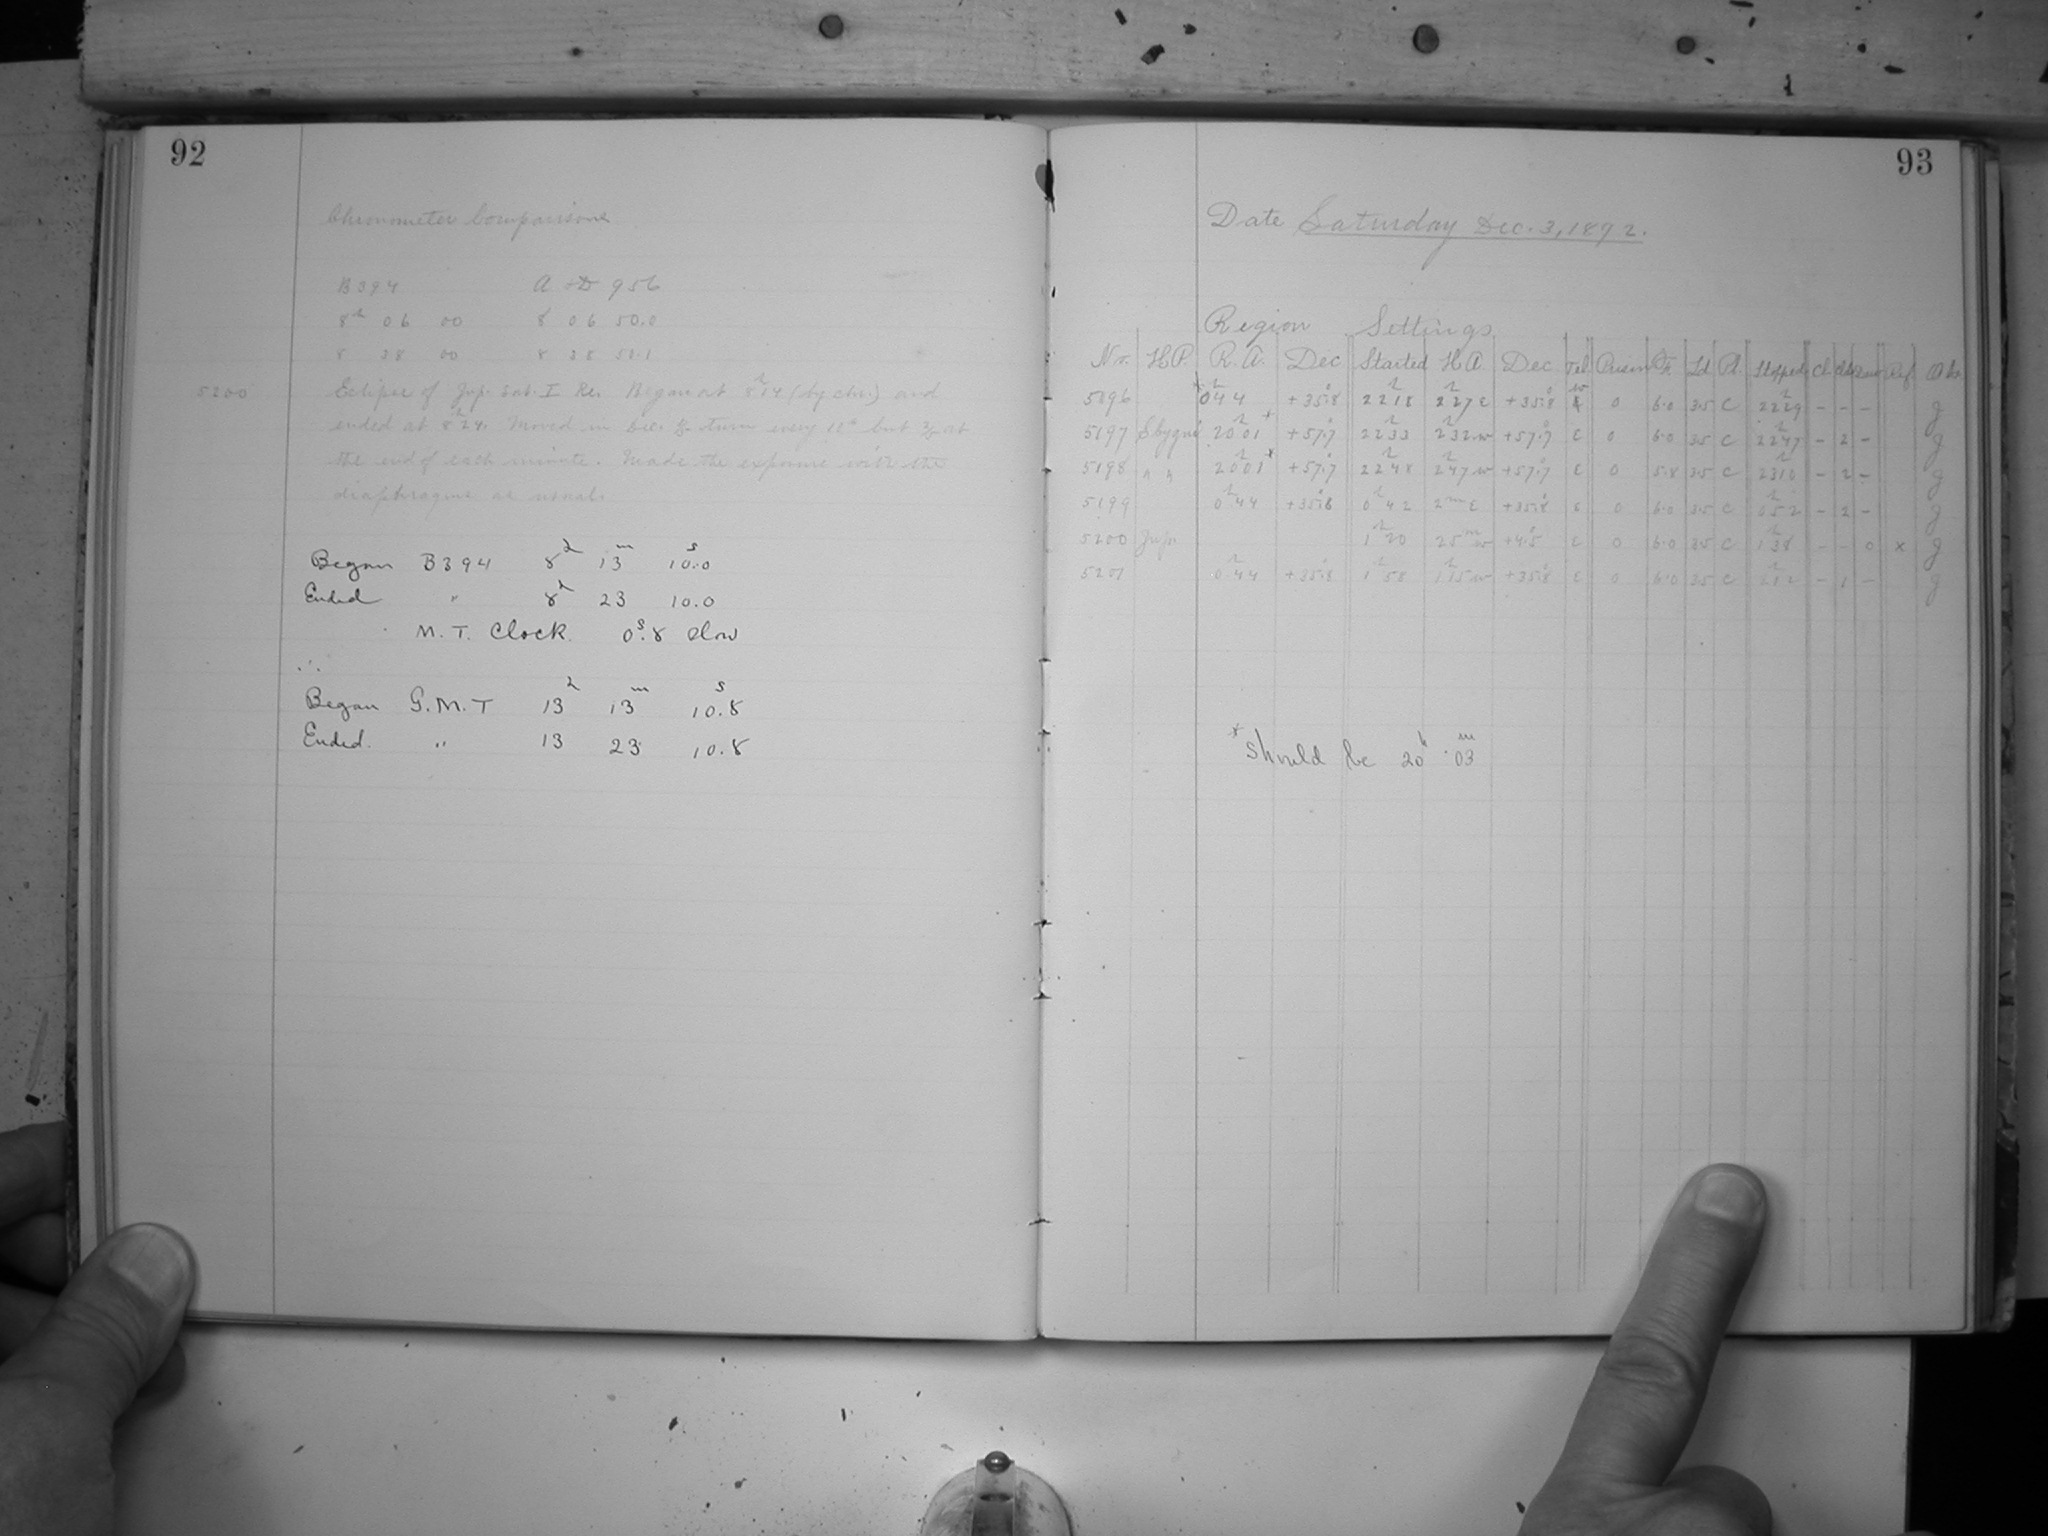 92
Chronometer Comparisons
B394 A & D 956
8h 06 00 8 06 50.0
8 38 00 8 38 50.1
5200 Eclipse of Jup. Sat. I Re. Began at 8h14 (by chr.) and
ended at 8h24. Moved in Dec. turn every 10s but at
the end of each minute. Made the exposure with the
diaphragm as usual.
Began B394 8h 13m 10.0s
Ended " 8h 23 10.0
M. T. Clock 0s.8 slow
∴
Began G.M.T 13h 13m 10.8s
Ended " 13 23 10.8
93
Date Saturday Dec. 3, 1892.
Region Settings
No. H.P. R.A. Dec Started H A Dec Tel Prism Fr. Ld Pl. Stopped Cl Ref Obs
5196 0h44 +35°.8 22h18 2h27 E +35°.8 0 6.0 35 C 22h29 - - - g
5197 20h01* +57°.7 22h33 2h32 w +57°.7 E 0 6.0 35 C 22h47 - 2 - g
5198 " " 20h01* +57°.7 22h48 2h47 w +57°.7 E 0 5.8 35 C 23h10 - 2 - g
5199 0h44 +35°.8 0h42 2m E +35°.8 E 0 6.0 35 C 0h52 - 2 - g
5200 Jup. 1h20 25m w +4°.5 E 0 6.0 35 C 1h38 - - 0 x g
5201 0h44 +35°.8 1h58 1h15 w +35°.8 E 0 6.0 35 C 2h12 - 1 - g
*should be 20h 03m